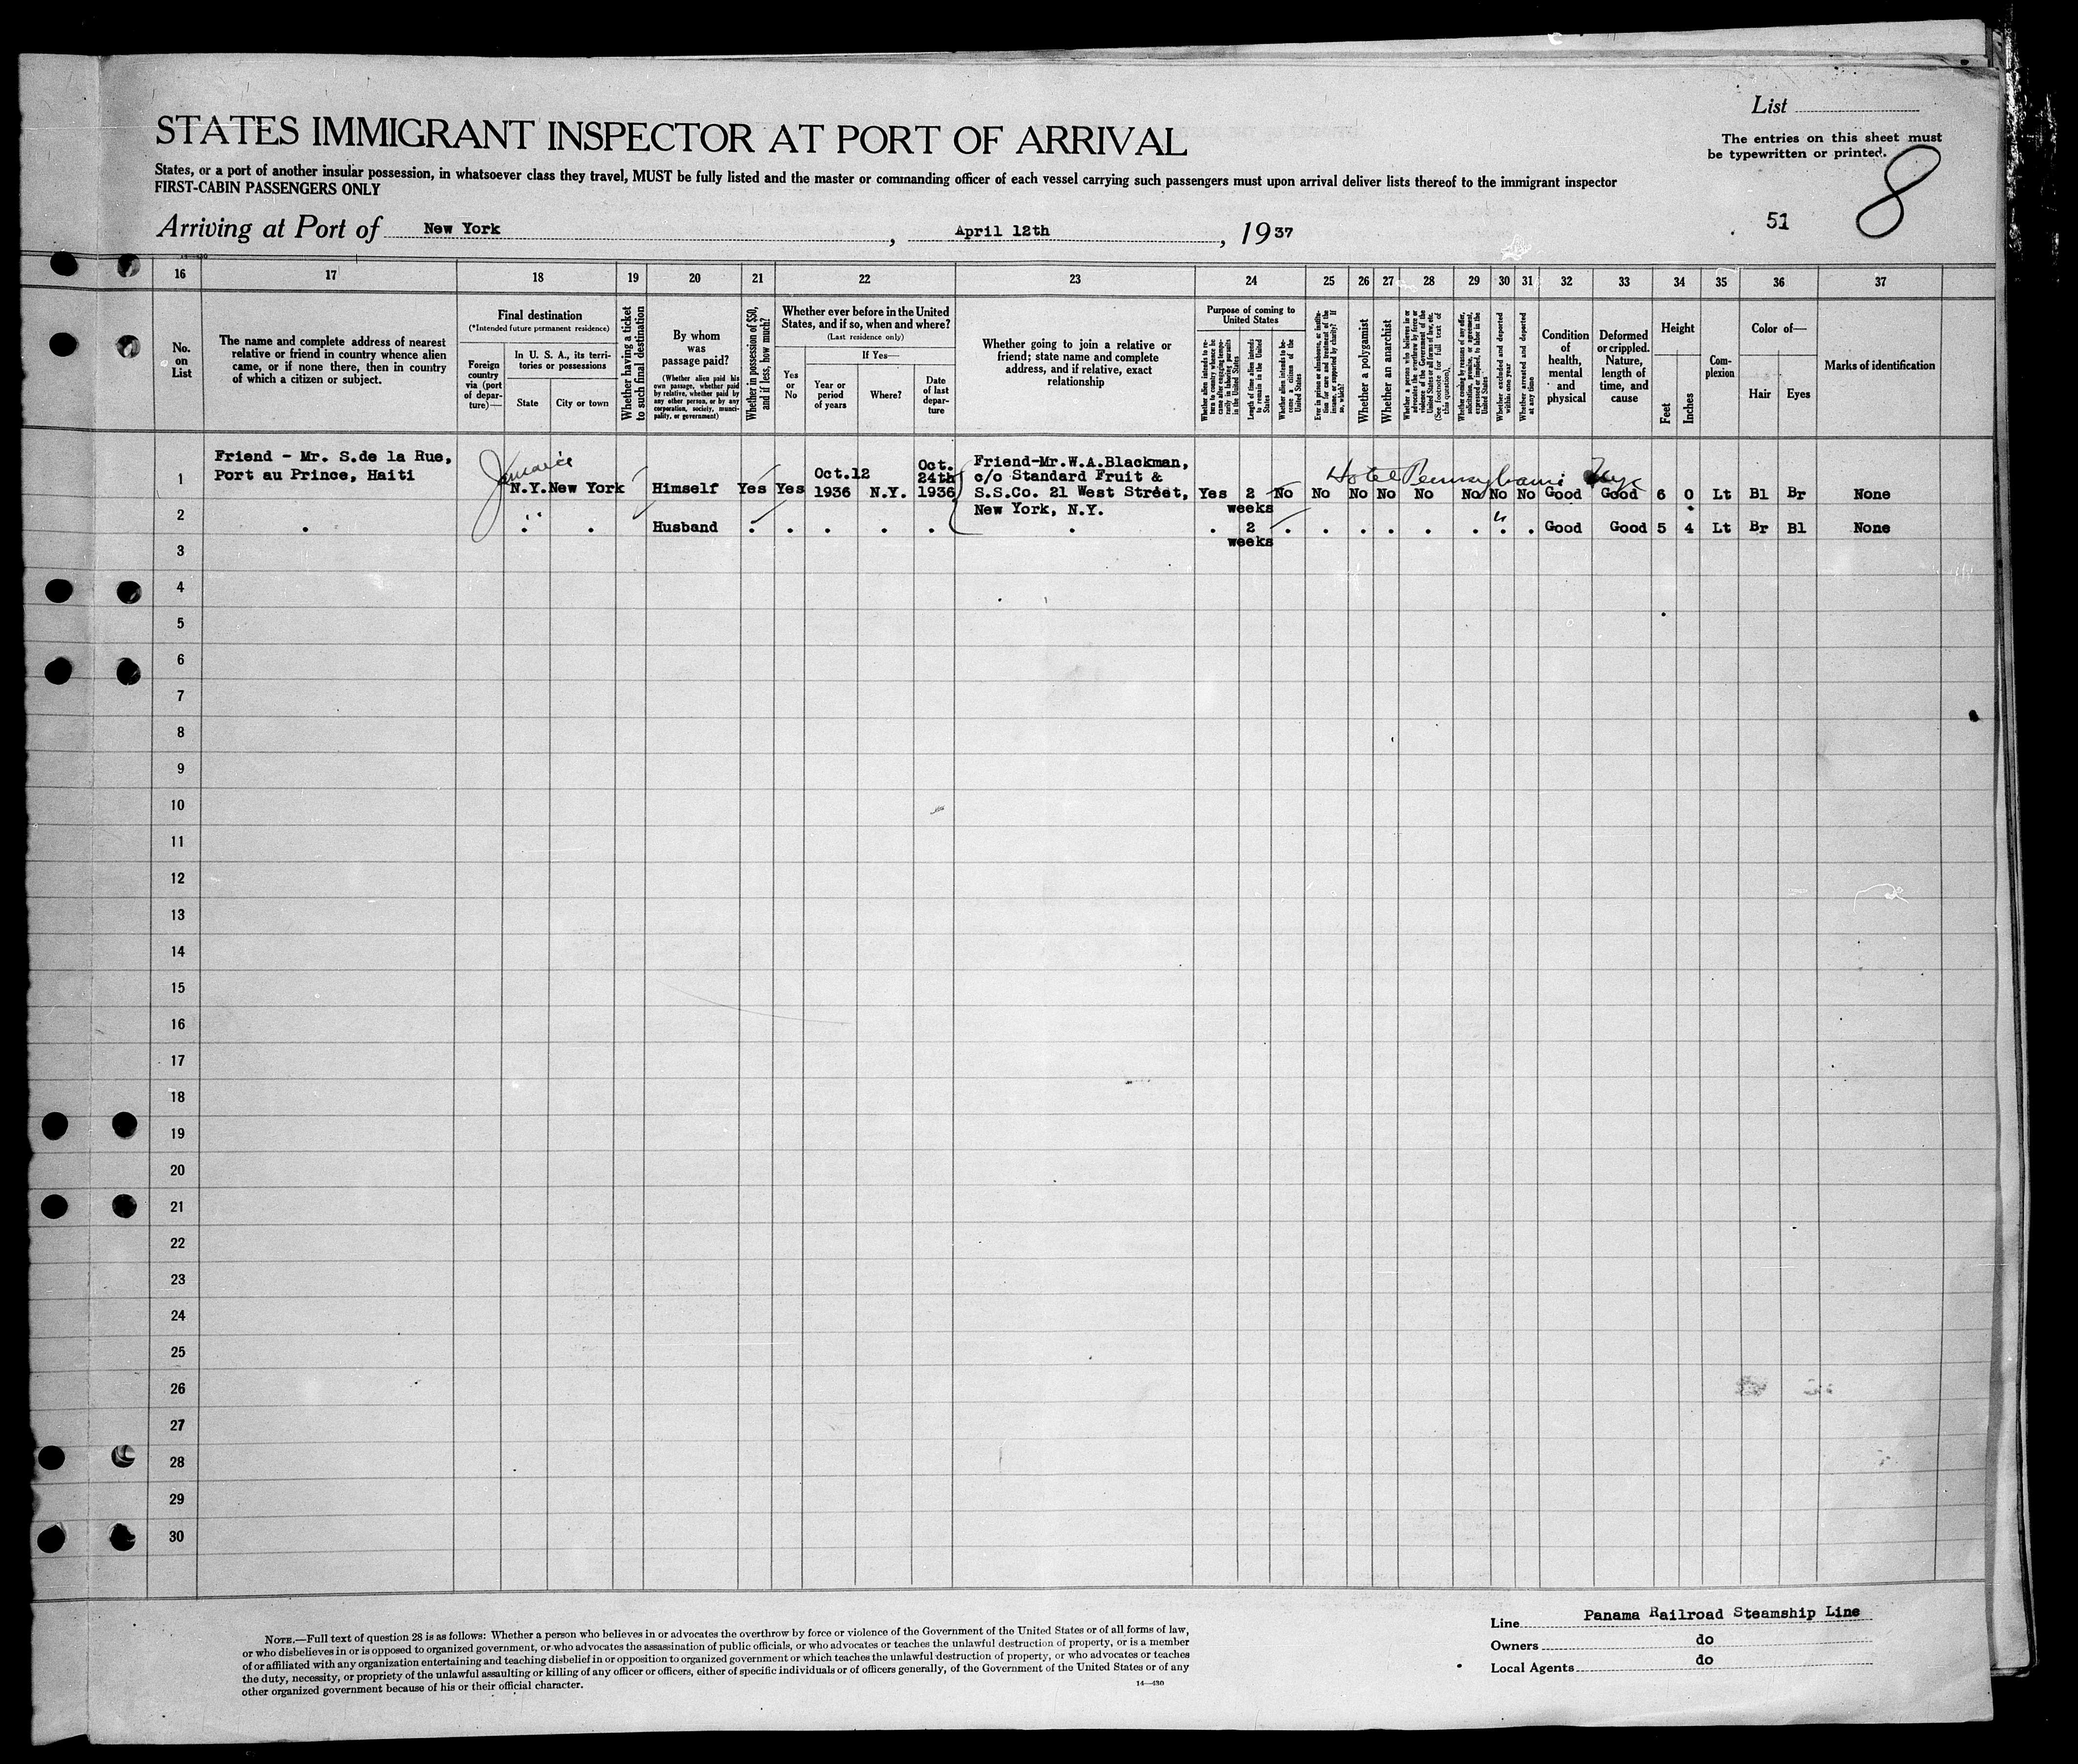 List
STATES IMMIGRANT INSPECTOR AT PORT OF ARRIVAL
The entries on this sheet must
be typewritten or printed.
States, or a port of another insular possession, in whatsoever class they travel, MUST be fully listed and the master or commanding officer of each vessel carrying such passengers must upon arrival deliver lists thereof to the immigrant inspector
FIRST-CABIN PASSENGERS ONLY
8
51
Arriving at Port of New York, April 12th, 1937
14—430
16 17 18 19 20 21 22 23 24 25 26 27 28 29 30 31 32 33 34 35 36 37
No.
on
List
The name and complete address of nearest
relative or friend in country whence alien
came, or if none there, then in country
of which a citizen or subject.
Final destination
(*Intended future permanent residence)
Foreign
country
via (port
of depar-
ture)—
In U. S. A., its terri-
tories or possessions
State
City or town
Whether having a ticket
to such final destination
By whom
was
passage paid?
(Whether alien paid his
own passage, whether paid
by relative, whether paid by
any other person, or by any
corporation, society, munici-
pality, or government)
Whether in possession of $50,
and if less, how much?
Whether ever before in the United
States, and if so, when and where?
(Last residence only)
Yes
or
No
If Yes—
Year or
period
of years
Where?
Date
of last
depar-
ture
Whether going to join a relative or
friend; state name and complete
address, and if relative, exact
relationship
Purpose of coming to
United States
Whether alien intends to re-
turn to country whence he
came after engaging tempo-
rarily in laboring pursuits
in the United States
Length of time alien intends
to remain in the United
States
Whether alien intends to be-
come a citizen of the
United States
Ever in prison or almshouse, or institu-
tion for care and treatment of the
insane, or supported by charity? If
so, which?
Whether a polygamist
Whether an anarchist
Whether a person who believes in or
advocates the overthrow by force or
violence of the Government of the
United States or all forms of law, etc.
(See footnote for full text of
this question)
Whether coming by reasons of any offer,
solicitation, promise, or agreement,
expressed or implied, to labor in the
United States
Whether excluded and deported
within one year
Whether arrested and deported
at any time
Condition
of
health,
mental
and
physical
Deformed
or crippled.
Nature,
length of
time, and
cause
Height
Feet
Inches
Com-
plexion
Color of—
Hair
Eyes
Marks of identification
Jamaica
Hotel Pennsylvania NYC
1 Friend - Mr. S.de la Rue,
Port au Prince, Haiti
N.Y. New York Himself Yes Yes
Oct.12
1936
N.Y.
Oct.
24th
1936
Friend-Mr.W.A.Blackman,
c/o Standard Fruit &
S.S.Co. 21 West Street,
New York, N.Y.
Yes 2
weeks
No No No No No No No No Good Good 6 0 Lt Bl Br None
2 . " . Husband . . . . . . . 2
weeks
. . . . . . " . . Good Good 5 4 Lt Br Bl None
3
4
5
6
7
8
9
10
11
12
13
14
15
16
17
18
19
20
21
22
23
24
25
26
27
28
29
30
NOTE.—Full text of question 28 is as follows: Whether a person who believes in or advocates the overthrow by force or violence of the Government of the United States or of all forms of law,
or who disbelieves in or is opposed to organized government, or who advocates the assassination of public officials, or who advocates or teaches the unlawful destruction of property, or is a member
of or affiliated with any organization entertaining and teaching disbelief in or opposition to organized government or which teaches the unlawful destruction of property, or who advocates or teaches
the duty, necessity, or propriety of the unlawful assaulting or killing of any officer or officers, either of specific individuals or of officers generally, of the Government of the United States or of any
other organized government because of his or their official character.
14—430
Line Panama Railroad Steamship Line
Owners do
Local Agents do